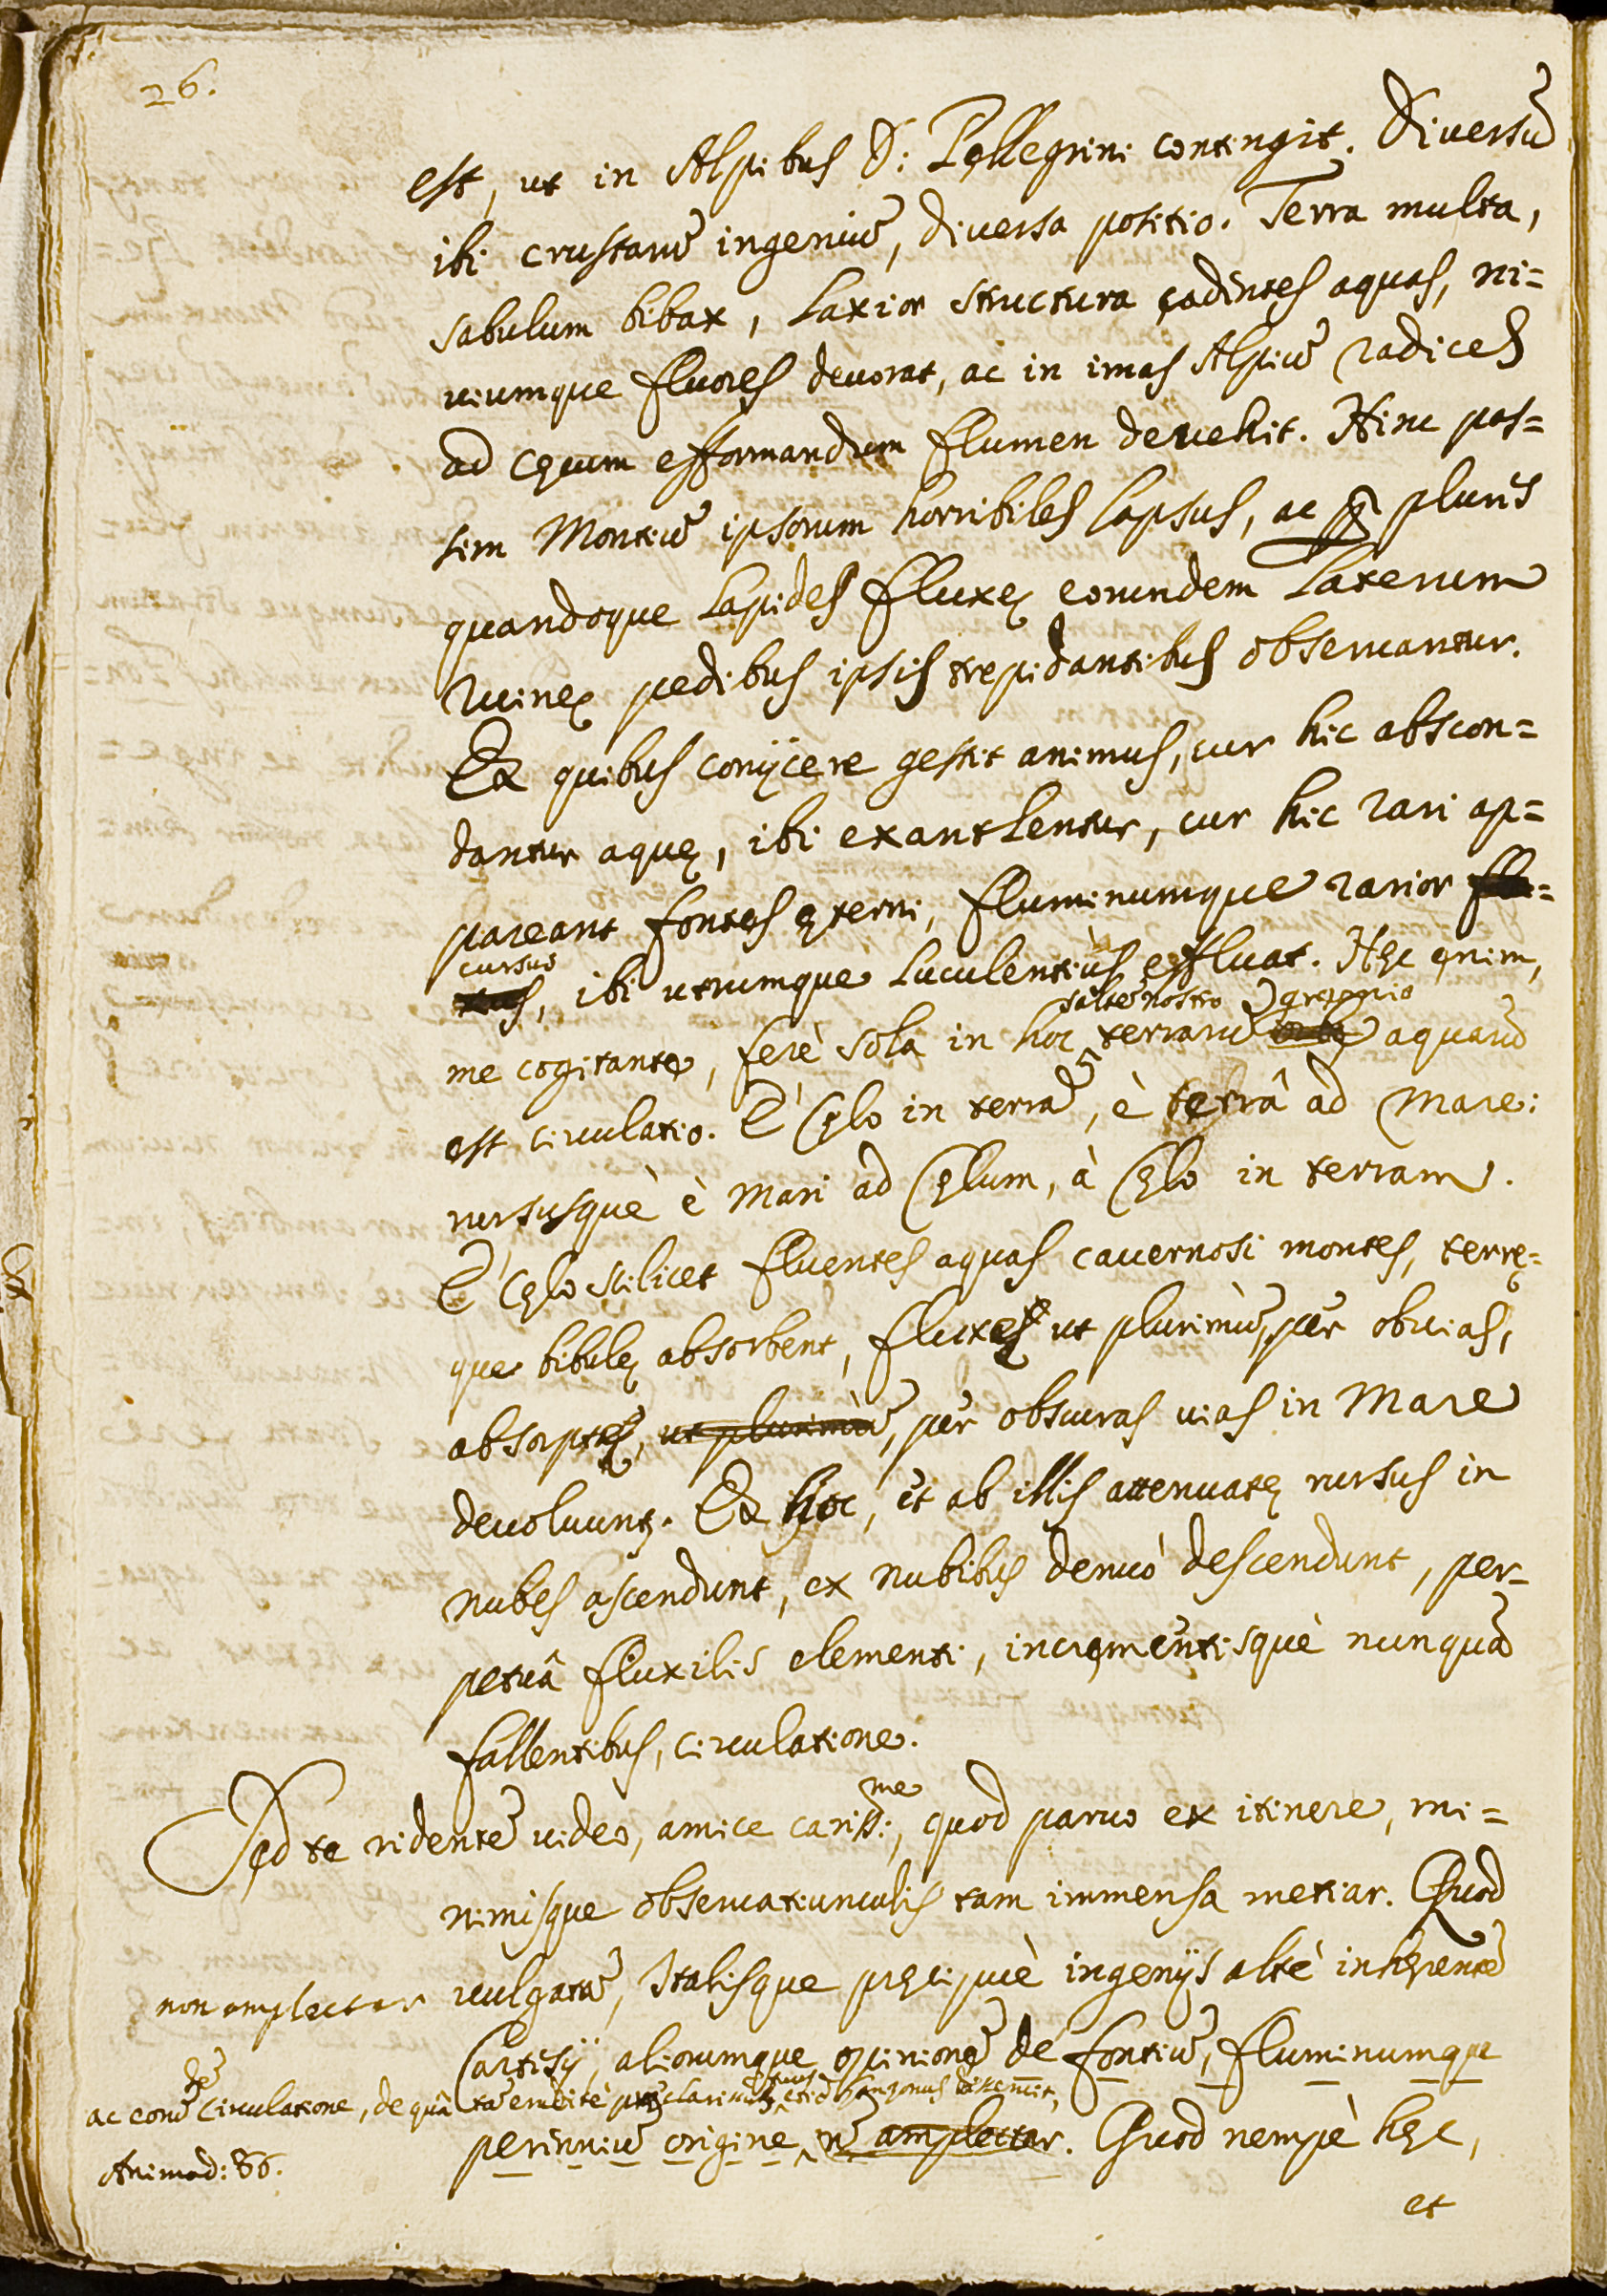 26.
est, ut in Alpibus D: Pellegrini contingit. Diversũ
ibi crustarũ ingeniũ, diversa positio. Terra multa,
sabulum bibax, Laxior structura cadentes aquas, ni=
viumque fluores devorat, ac in imas Alpiũ radices
ad cęcum efformandum flumen devehit. Hinc pas=
sim Montiũ ipsorum horribiles lapsus, ac pluris
quandoque Lapides fluxę eorundem Laterum
ruinę pedibus ipsis trepidantibus observantur.
Ex quibus conijcere gestit animus, cur hic abscon=
dantur aquę, ibi exantlentur, cur hic rari ap=
pareant fontes ęterni, fluminumque rarior
cursus
, ibi utrumque Luculentiùs effluat. Hęc enim,
saltẽ nostro gremio
me cogitante, ferè sola in hoc terrarũ aquarũ
est circulatio. E' Cęlo in terrã, è terrâ ad Mare:
rursusquè è Mari ad Cęlum, à Cęlo in terram.
E' Cęlo scilicet fluentes aquas cavernosi montes, terrę=
que bibulę absorbent, fluxę ut plurimũ, per obvias,
absorptę, ut plurimũ, per obscuras vias in Mare
devolvunt. Ex hoc, et ab illis attenuatę rursus in
nubes ascendunt, ex nubibus denuò descendunt, per=
petuâ fluxilis elementi, incrementisquè nunquã
fallentibus, circulatione.
Sed te ridentẽ video, amice cariss:me, quod parvo ex itinere, mi=
nimisque observatiunculis tam immensa metiar. Quod
non amplectar vulgatã, Italisque pręcipuè ingenijs altè inhęrentẽ
Cartisij, aliorumque opinionẽ de fontiũ, fluminumque
ac eorũdẽ Circulatione, de quâ tã eruditè clarissimus
perinniũ origine, nõ amplectar. Quod nempè hęc,
Animad: 86.
et